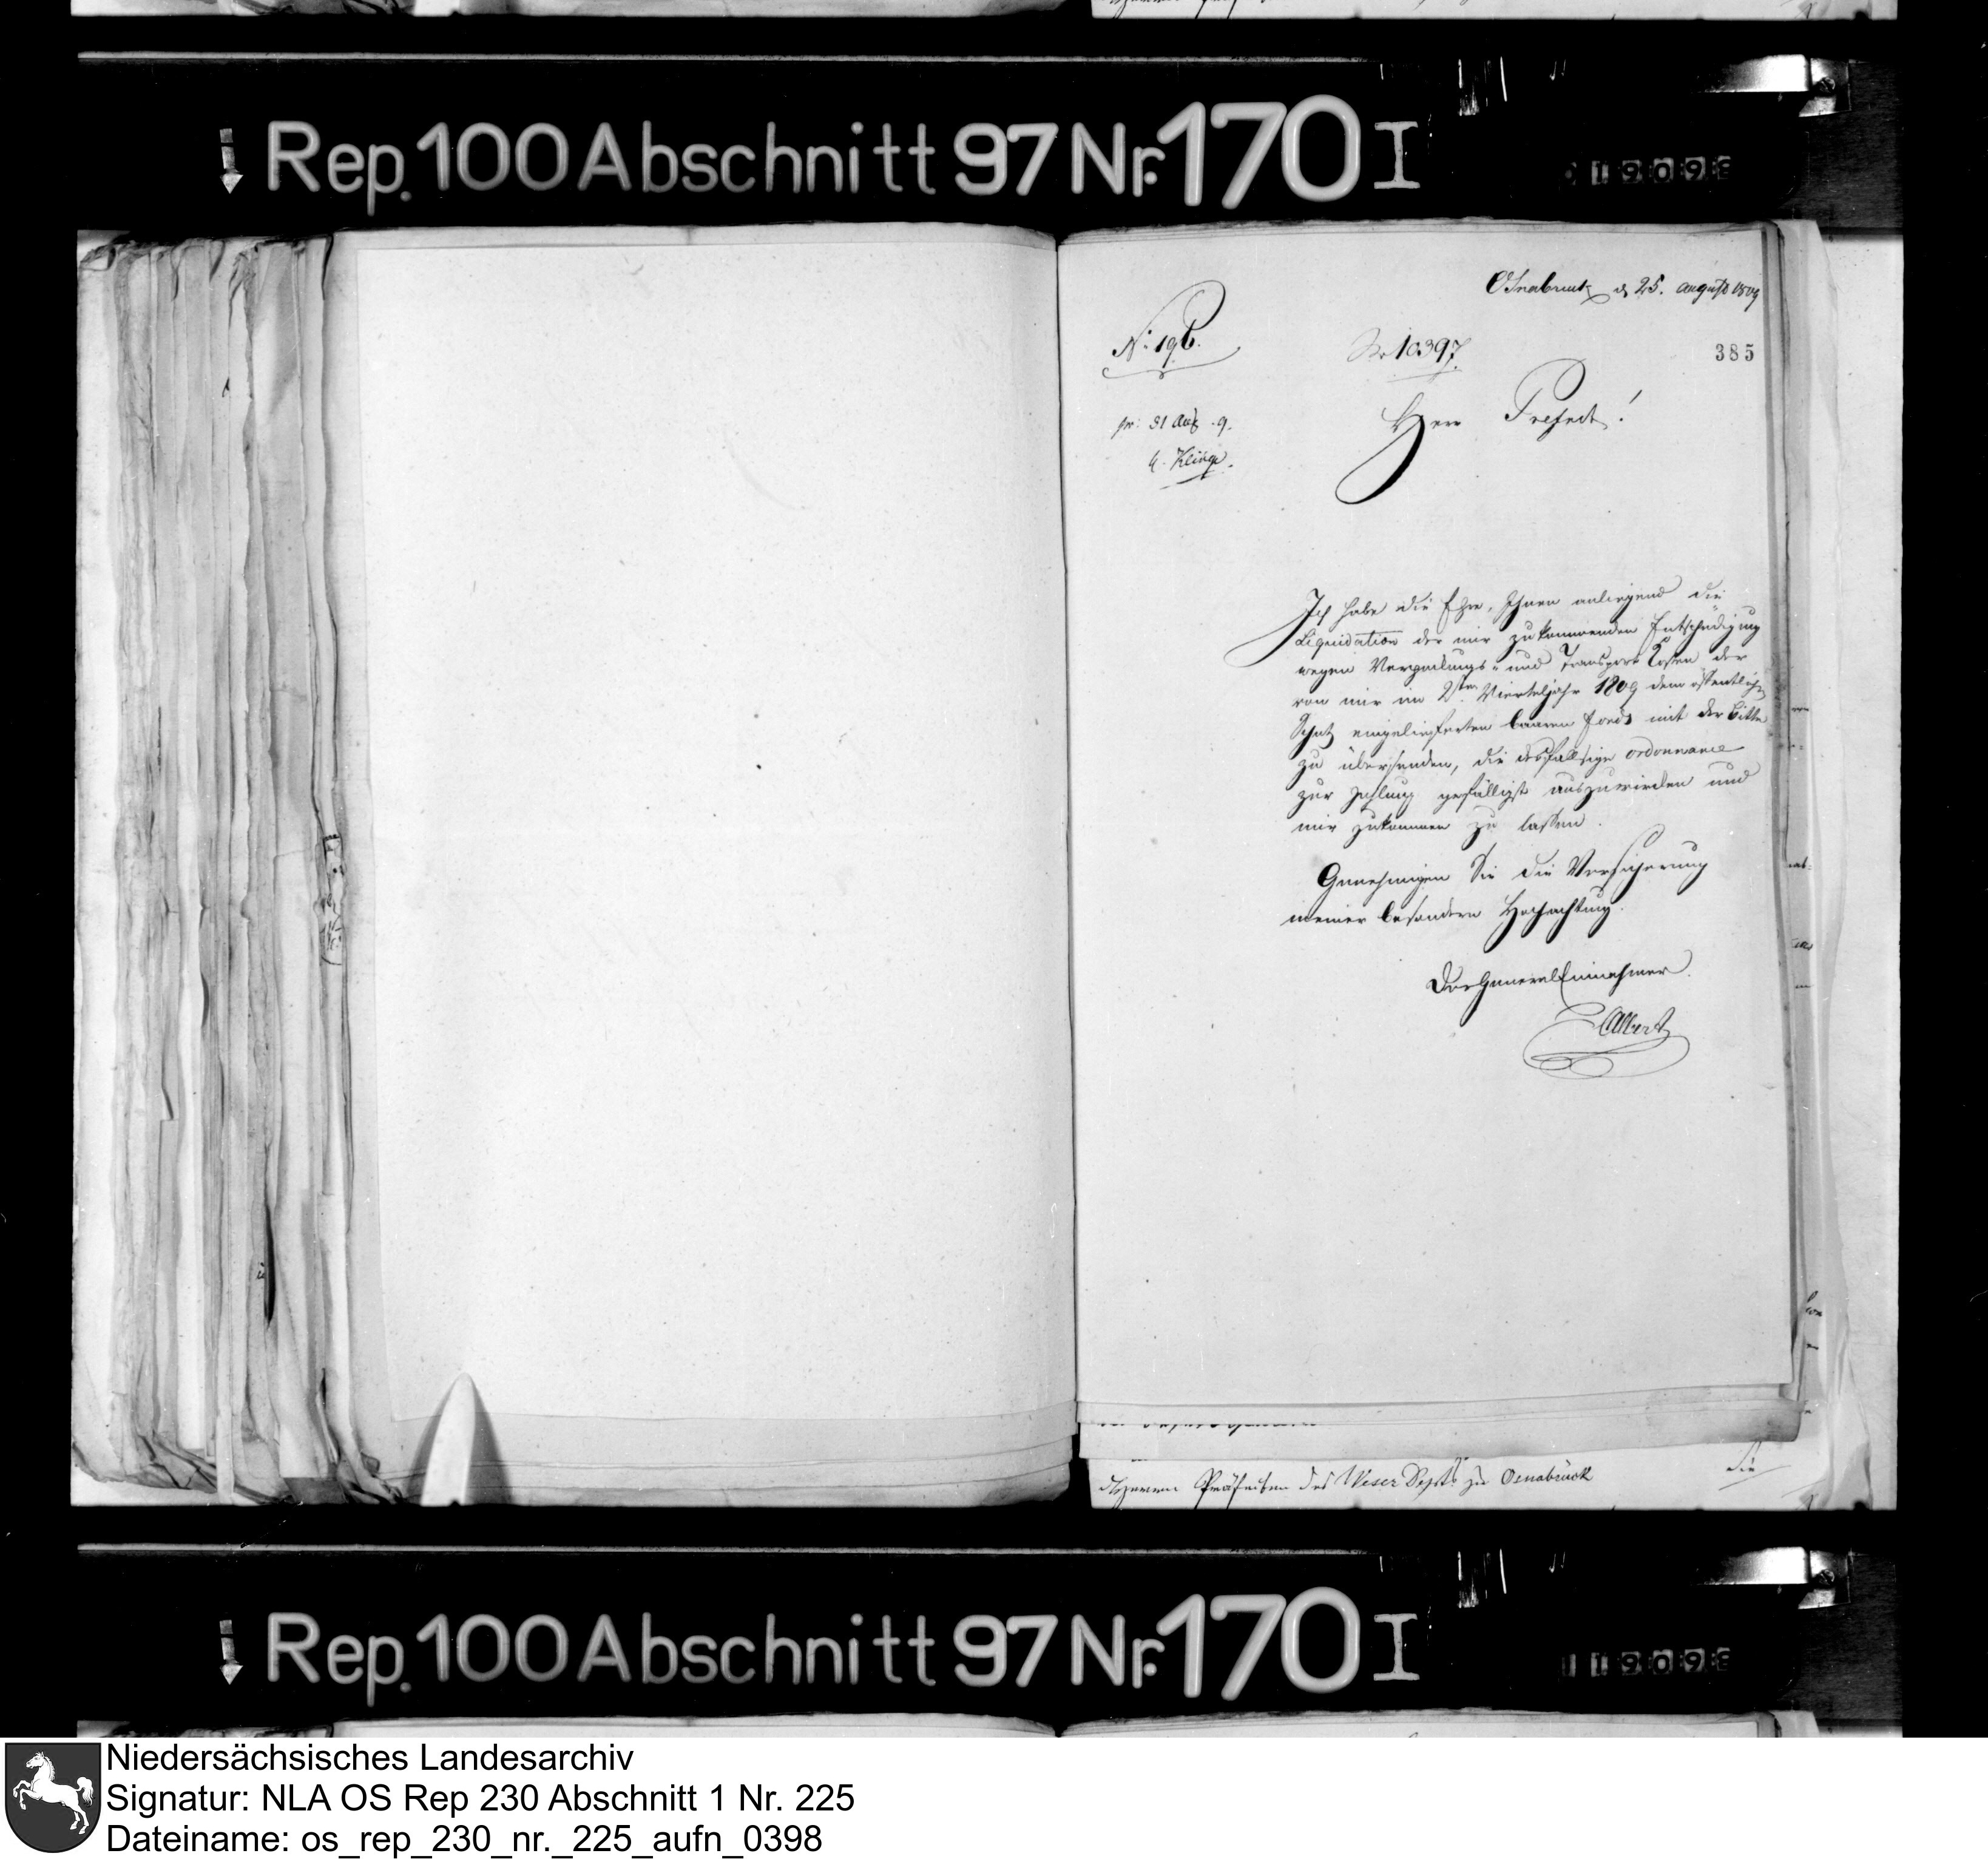 Rep. 100 Abschnitt 97 Nr. 170 I
19093
Osnabruck d 25. august 1809
N: 196.
Nr 10397.
385
Herr Prefect!
pr: 31 Aug. 9.
Ich habe die Ehre, Ihnen anliegend die
Liquidation der mir zukommenden Entschädigung
wegen Verpackungs- und Transport Kosten der
von mir im 2ten Vierteljahr 1809 dem öffentlichen
Schatz eingelieferten baaren Fonds mit der Bitte
zu übersenden, die desfallsige ordonnance
zur Zahlung gefälligst auszuwirken und
mir zukommen zu lassen.
Genehmigen Sie die Versicherung
meiner besondern Hochachtung.
Der General Einnehmer.
Albert
Herrn Präfecten des Weser Depts. zu Osnabrück
die
Rep. 100 Abschnitt 97 Nr. 170 I
19093
Niedersächsisches Landesarchiv
Signatur: NLA OS Rep 230 Abschnitt 1 Nr. 225
Dateiname: os_rep_230_nr._225_aufn_0398